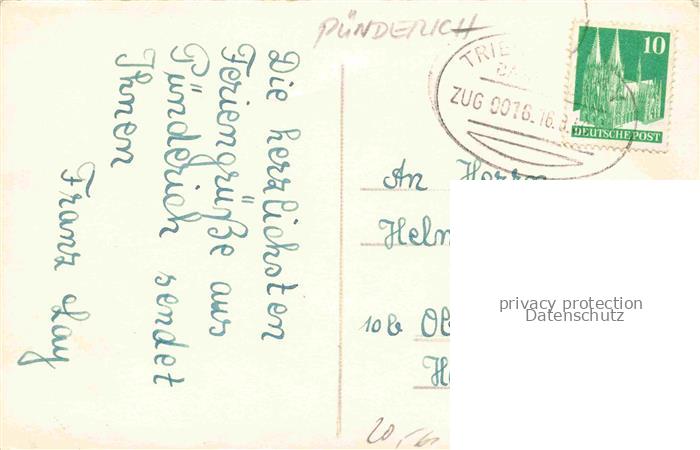 PÜNDERICH
Die herzlichsten
Feriengrüße aus
Pünderich sendet
Ihnen
Franz Lay
TRIE
BA
ZUG 0016
16.8.
10
DEUTSCHE POST
An Herrn
Helm
10b Ob
H
20,-
privacy protection
Datenschutz